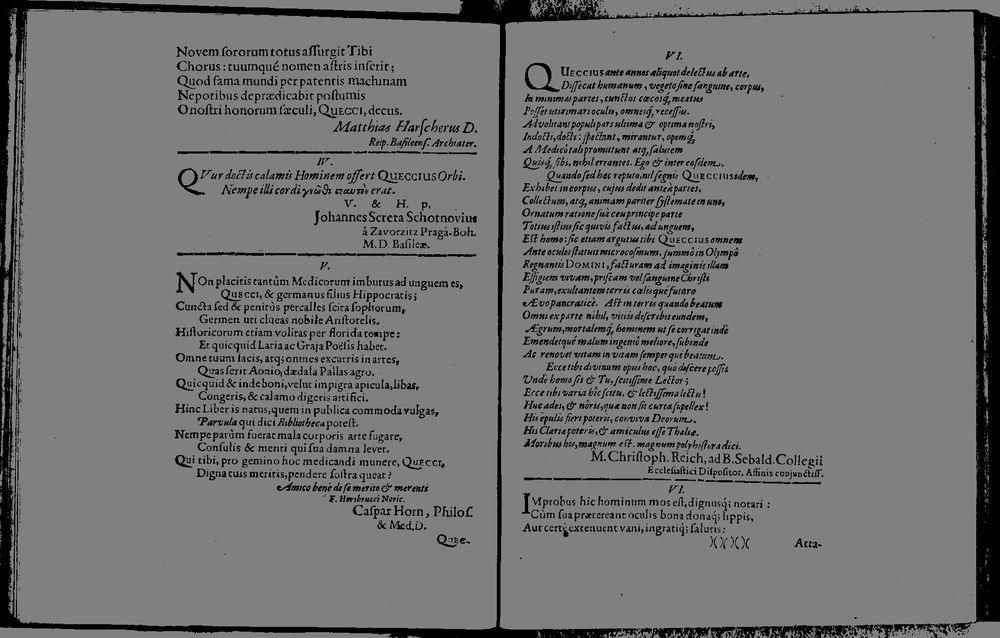 Novem ſororum totus aſſurgit Tibi
Chorus : tuumqué nomen aſtris inſerit ;
Quod fama mundi per patentis machinam
Nepotibus deprædicabit poſtumis
O noſtri honorum ſæculi, QUECCI, decus.
Matthias Harſcherus D.
Reip. Baſileenſ. Archiater.
IV.
QVur doctis calamis Hominem offert QUECCIUS Orbi.
Nempe illi cordi γνῶθι σεαυτὸν erat.
V. & H. p.
Johannes Screta Schotnovius
â Zavorzitz Pragâ-Boh.
M. D. Baſileæ.
V.
NOn placitis tantum Medicorum imbutus ad unguem es,
QUECCI, & germanus filius Hippocratis ;
Cuncta ſed & penitùs percalles ſcita ſophorum,
Germen uti clueas nobile Ariſtotelis.
Hiſtoricorum etiam volitas per florida tempe :
Et quicquid Latia ac Graja Poëſis habet.
Omne tuum facis, atq; omnes excurris in artes,
Quas ſerit Aonio, dædala Pallas agro.
Quicquid & inde boni, velut impigra apicula, libas,
Congeris, & calamo digeris artifici.
Hinc Liber is natus, quem in publica commoda vulgas,
Parvula qui dici Bibliotheca poteſt.
Nempe parùm fuerat mala corporis arte fugare,
Conſulis & menti qui ſua damna levet.
Qui tibi, pro gemino hoc medicandi munere, QUECCI,
Digna tuis meritis, pendere ſoſtra queat ?
Amico benè de ſe merito & merenti
F. Hersbrucci Noric.
Caſpar Horn, Philoſ.
& Med. D.
Quec-
VI.
QUECCIUS ante annos aliquot delectus ab arte,
Diſſecat humanum, vegeto ſine ſanguine, corpus,
In minimas partes, cunctos cæcosq, meatus
Poſſet ut rimari oculis, omnesq, receſſus.
Advolitant populi pars ultima & optima noſtri,
Indocti, docti : ſpectant, mirantur, opemq,
A Medicô tali promittunt atq, ſalutem
Quisq, ſibi, nihil errantes. Ego & inter eoſdem.
Quando ſed hæc reputo, nil ſegnis QUECCIUS idem,
Exhibet in corpus, cujus dedit antè partes,
Collectum, atq, animam pariter ſyſtemate in uno,
Ornatum ratione ſuâ ceu principe parte
Totius iſtius ſic quivis factus, ad unguem,
Eſt homo : ſic etiam argutus tibi QUECCIUS omnem
Ante oculos ſtatuit microcoſmum, ſummô in Olympô
Regnantis DOMINI, facturam ad imaginis illam
Effigiem vivam, priſcam vel ſanguine Chriſti
Puram, exultantem terris cœlisque futuro
Ævo pancraticè. Aſt in terris quando beatum
Omni ex parte nihil, vitiis deſcribit eundem,
Ægrum, mortalemq, hominem ut ſe corrigat indè
Emendetquè malum ingeniô meliore, ſubinde
Ac renovet vitam in vitam ſemperque beatam.
Ecce tibi divinum opus hoc, quo diſcere poſſis
Undè homo ſis & Tu, ſcitiſſime Lector ;
Ecce tibi varia hîc ſcitu, & lectiſſima lectu !
Huc ades, & nôris, quæ non ſit curta ſupellex !
His epulis fieri poteris, conviva Deorum.
His Clariæ poteris, & amiculus eſſe Thaliæ.
Moribus his, magnum eſt, magnum polyhiſtora dici.
M. Chriſtoph. Reich, ad B. Sebald. Collegii
Eccleſiaſtici Diſpoſitor, Affinis conjunctiſſ.
VI.
IMprobus hic hominum mos eſt, dignusq; notari :
Cùm ſua prætereant oculis bona donaq; lippis,
Aut certè extenuent vani, ingratiq; ſaluris :
)( )( )( )(
Atta-